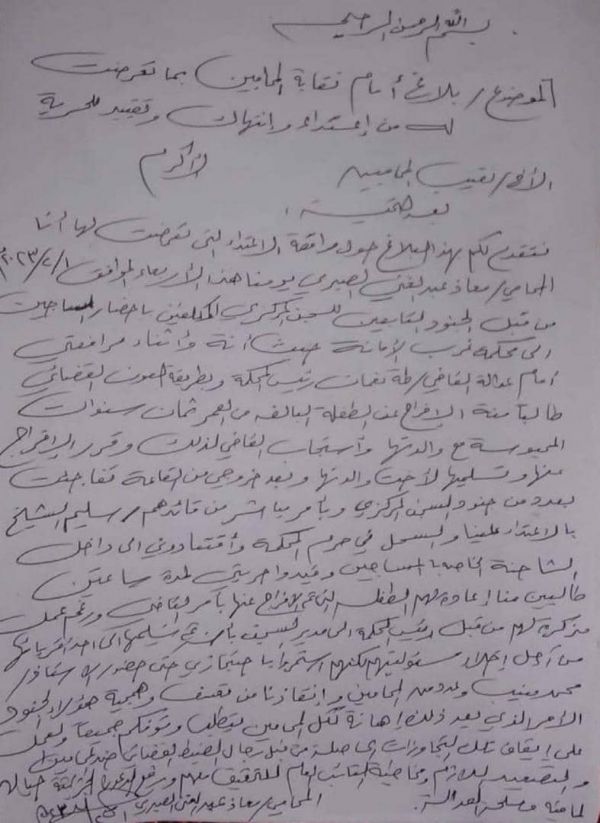 بسم الله الرحمن الرحيم
الموضوع/ بلاغ أمام نقابة المحامين بما تعرضت
له من إعتداء وإنتهاك وتقييد للحرية
الأخ/ نقيب المحاميين الأكرم
بعد التحية ،
نتقدم لكم بهذا البلاغ حول واقعة الاعتداء التي تعرضت لها أنا
المحامي/ معاذ عبدالغني الصبري يومنا هذا الأربعاء الموافق
من قبل الجنود التابعين للسجن المركزي المكلفين باحضار المساجين
الى محكمة غرب الأمانة حيث أنه وأثناء مرافعتي
أمام عدالة القاضي/ طه نعمان رئيس المحكمة وبطريقة العون القضائي
طالباً منه الافراج عن الطفلة البالغه من العمر ثمان سنوات
المحبوسة مع والدتها وأستجاب القاضي لذلك وقرر الافراج
عنها وتسليمها لأخت والدتها وبعد خروجي من القاعة تفاجئت
بعدد من جنود السجن المركزي وبأمر مباشر من قائدهم/ سليم الشيخ
بالاعتداء علينا والسحل في حرم المحكمة وأقتادوني الى داخل
الشاحنة الخاصه بالمساجين وقيدوا حريتي لمدة ساعتين
طالبين منا إعادة لهم الطفله التي تم الافراج عنها بأمر القاضي ورغم عمل
مذكرة لهم من قبل رئيس المحكمة الى مدير السجن بأن تم تسليمها الى احد أقربائها
من أجل إخلاء مسئوليتهم لكنهم استمروا باحتجازي حتى حضور الاستاذ/
محمد منيب وعدد من المحامين وإنقاذنا من تعسف وهمجية هؤلاء الجنود
الأمر الذي يعد ذلك إهانة لكل المحامين يتطلب وقوفكم جميعاً والعمل
على إيقاف تلك التجاوزات الحاصلة من قبل رجال الضبط القضائي
والتصعيد اللازم ومخاطبة النائب العام للتحقيق معهم
لما فيه مصلحة العدالة. المحامي/ معاذ عبدالغني الصبري